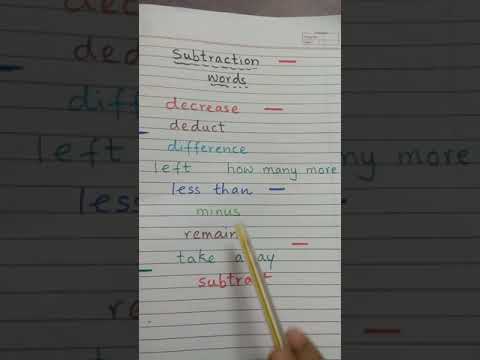 Subtraction —
words
decrease —
deduct
difference
left how many more
less than —
minus
remain
take away
subtract